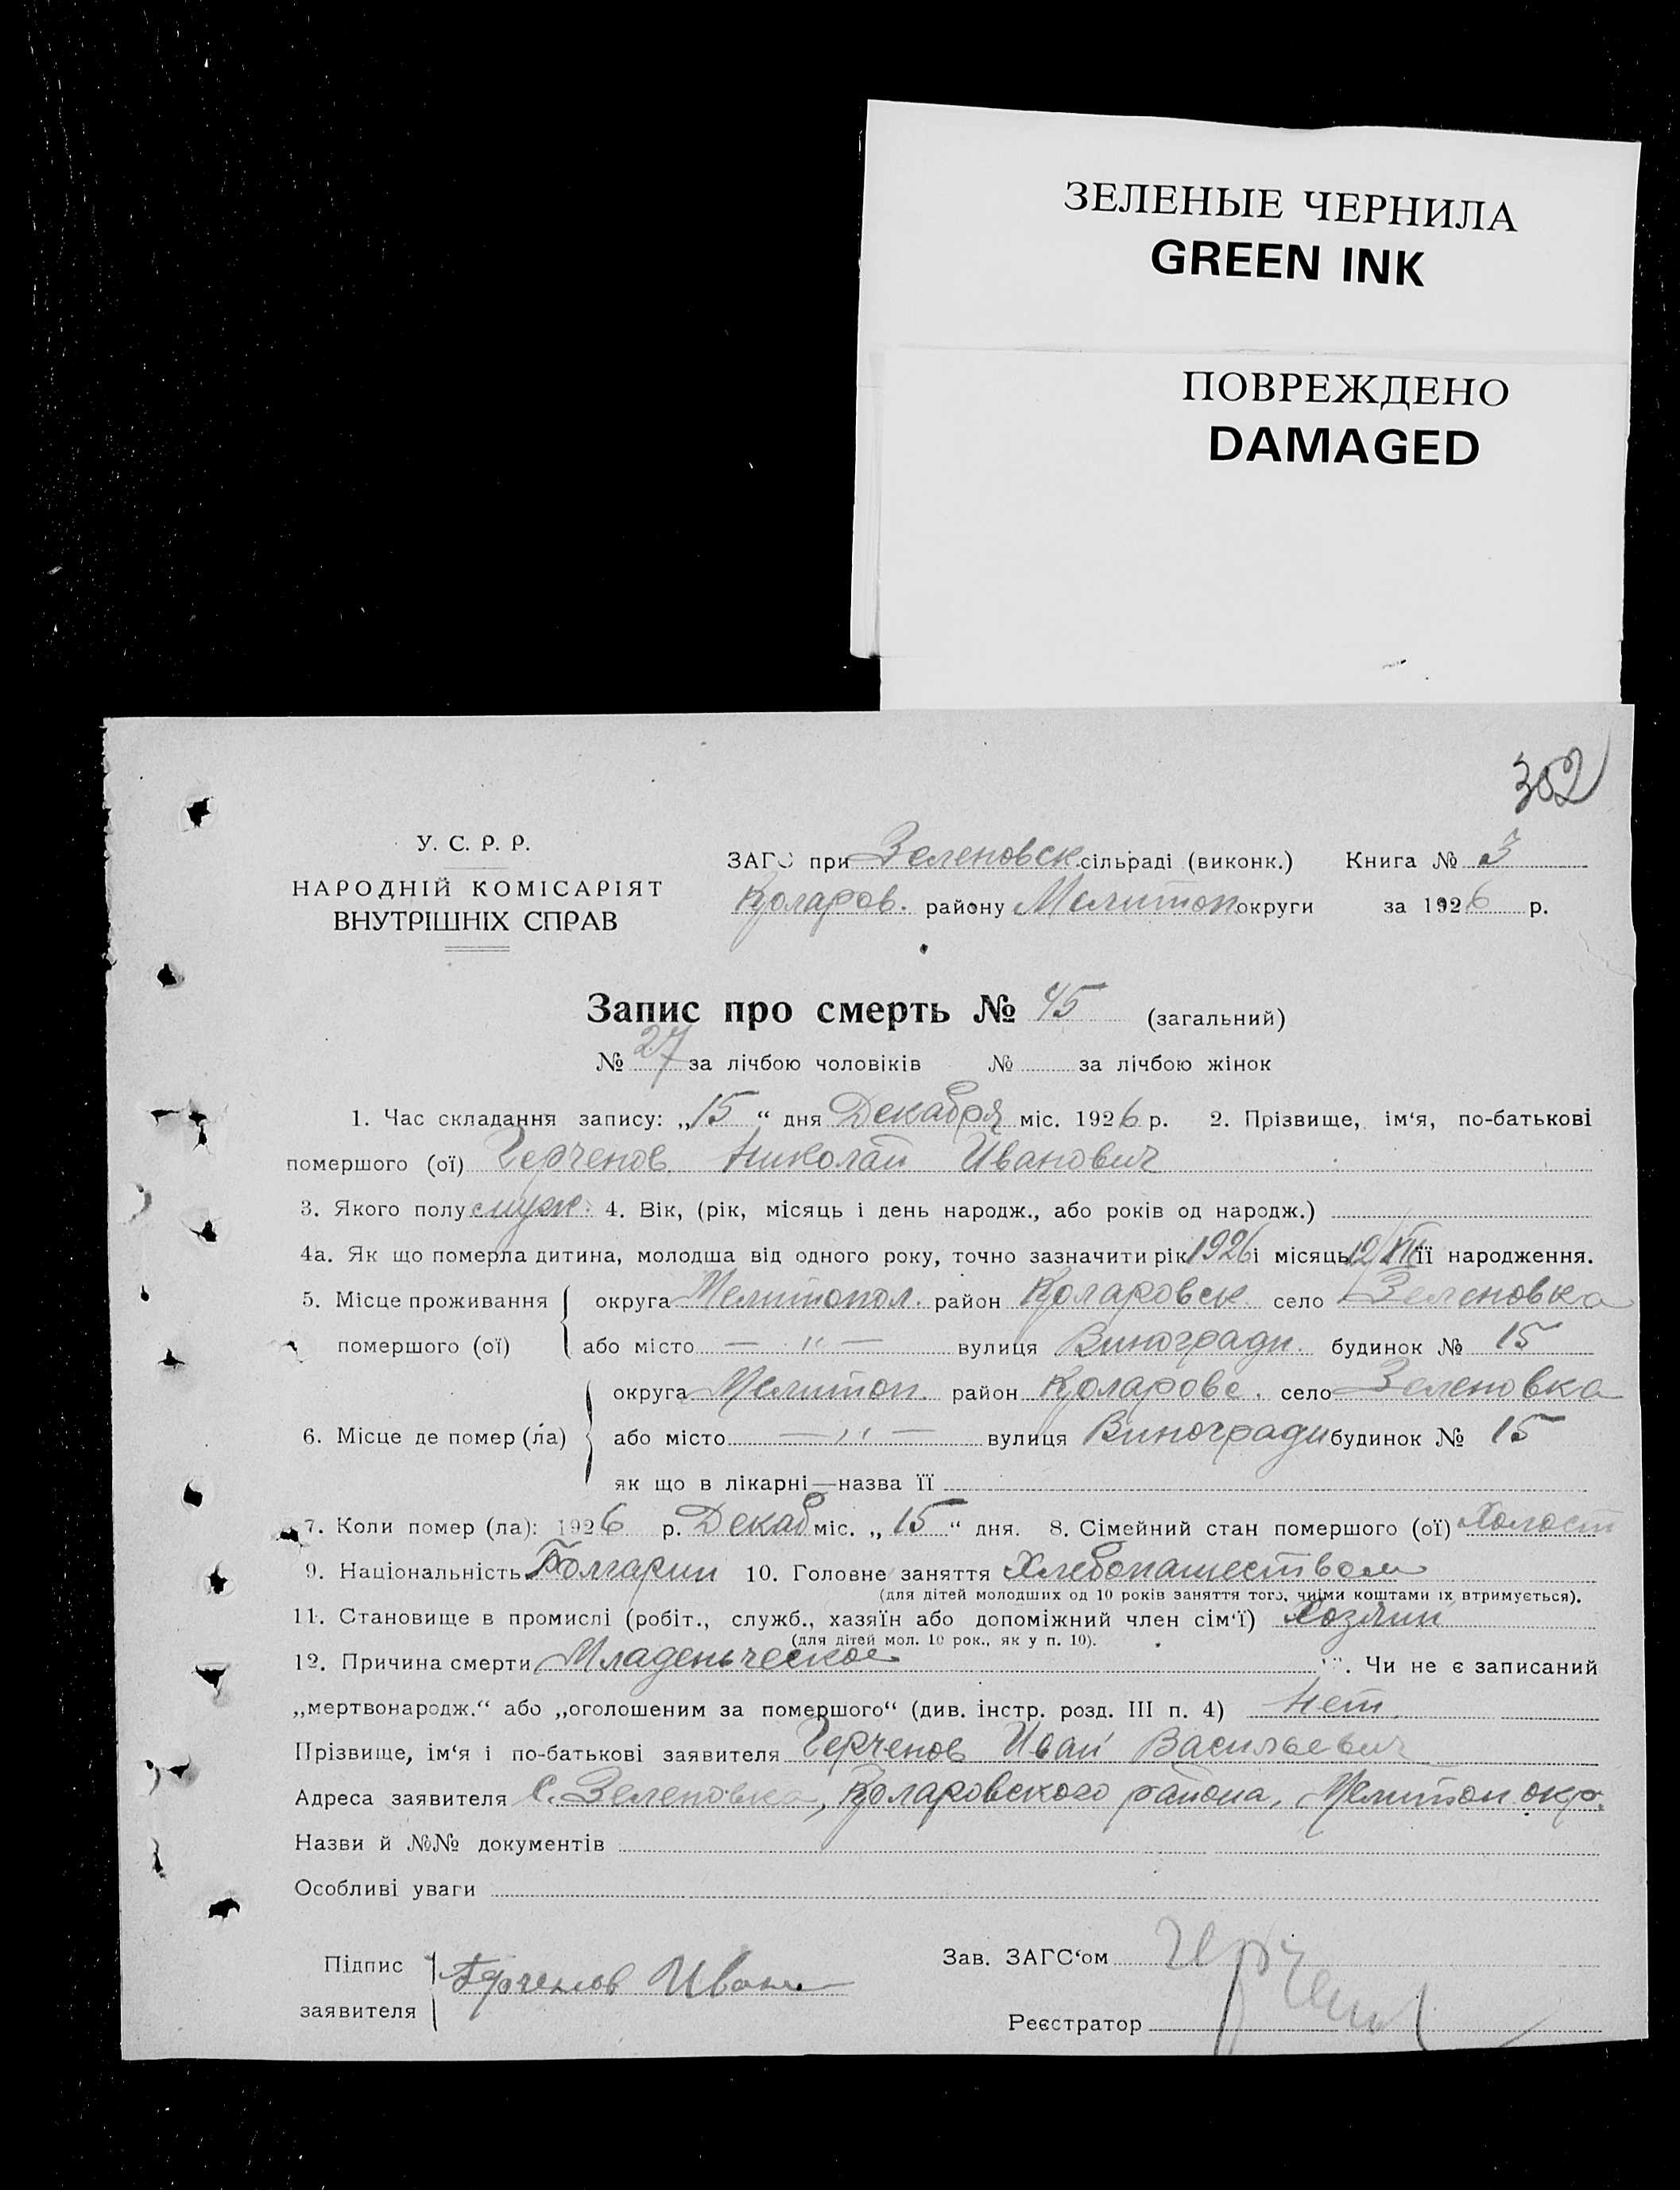 ЗЕЛЕНЫЕ ЧЕРНИЛА
GREEN INK
ПОВРЕЖДЕНО
DAMAGED
302
У. С. Р. Р.
НАРОДНІЙ КОМІСАРІЯТ
ВНУТРІШНІХ СПРАВ
ЗАГС при Зеленовск. сільраді (виконк.) Книга № 3
Коларов. району Мелитоп округи за 1926 р.
Запис про смерть № 45 (загальний)
№ 27 за лічбою чоловіків № за лічбою жінок
1. Час складання запису: „15“ дня Декабря міс. 1926 р. 2. Прізвище, ім‘я, по-батькові
помершого (ої) Герченов Николай Иванович
3. Якого полу муж. 4. Вік, (рік, місяць і день народж., або років од народж.)
4а. Як що померла дитина, молодша від одного року, точно зазначити рік 1926 і місяць 12/XII її народження.
5. Місце проживання округа Мелитопол. район Коларовск село Зеленовка
помершого (ої) або місто — " — вулиця Виногради. будинок № 15
округа Мелитоп. район Коларовс. село Зеленовка
6. Місце де помер (ла) або місто — " — вулиця Виногради будинок № 15
як що в лікарні—назва її
7. Коли помер (ла): 1926 р. Декаб міс. „15“ дня. 8. Сімейний стан помершого (ої) Холост
9. Національність Болгарин 10. Головне заняття Хлебопашеством
(для дітей молодших од 10 років заняття того, чиїми коштами їх втримується).
11. Становище в промислі (робіт., служб., хазяїн або допоміжний член сім‘ї) Хозяин
(для дітей мол. 10 рок., як у п. 10).
12. Причина смерти Младенческое . Чи не є записаний
„мертвонародж.“ або „оголошеним за помершого“ (див. інстр. розд. III п. 4) Нет.
Прізвище, ім‘я і по-батькові заявителя Герченов Иван Васильевич
Адреса заявителя С. Зеленовка, Коларовского района, Мелитоп окр.
Назви й №№ документів
Особливі уваги
Підпис заявителя Герченов Иван
Зав. ЗАГС‘ом
Реєстратор